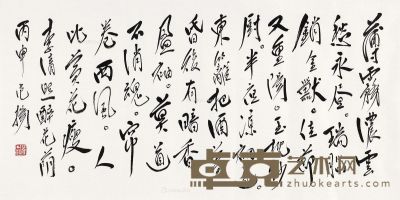 薄霧濃雲
愁永晝。瑞腦
銷金獸。佳節
又重陽。玉枕紗
厨。半夜凉初透。
東籬把酒黃
昏後有暗香
盈袖。莫道
不消魂。帘
卷西風。人
比黃花瘦。
李清照醉花蔭
丙申
卓克艺术网
zhuokearts.com